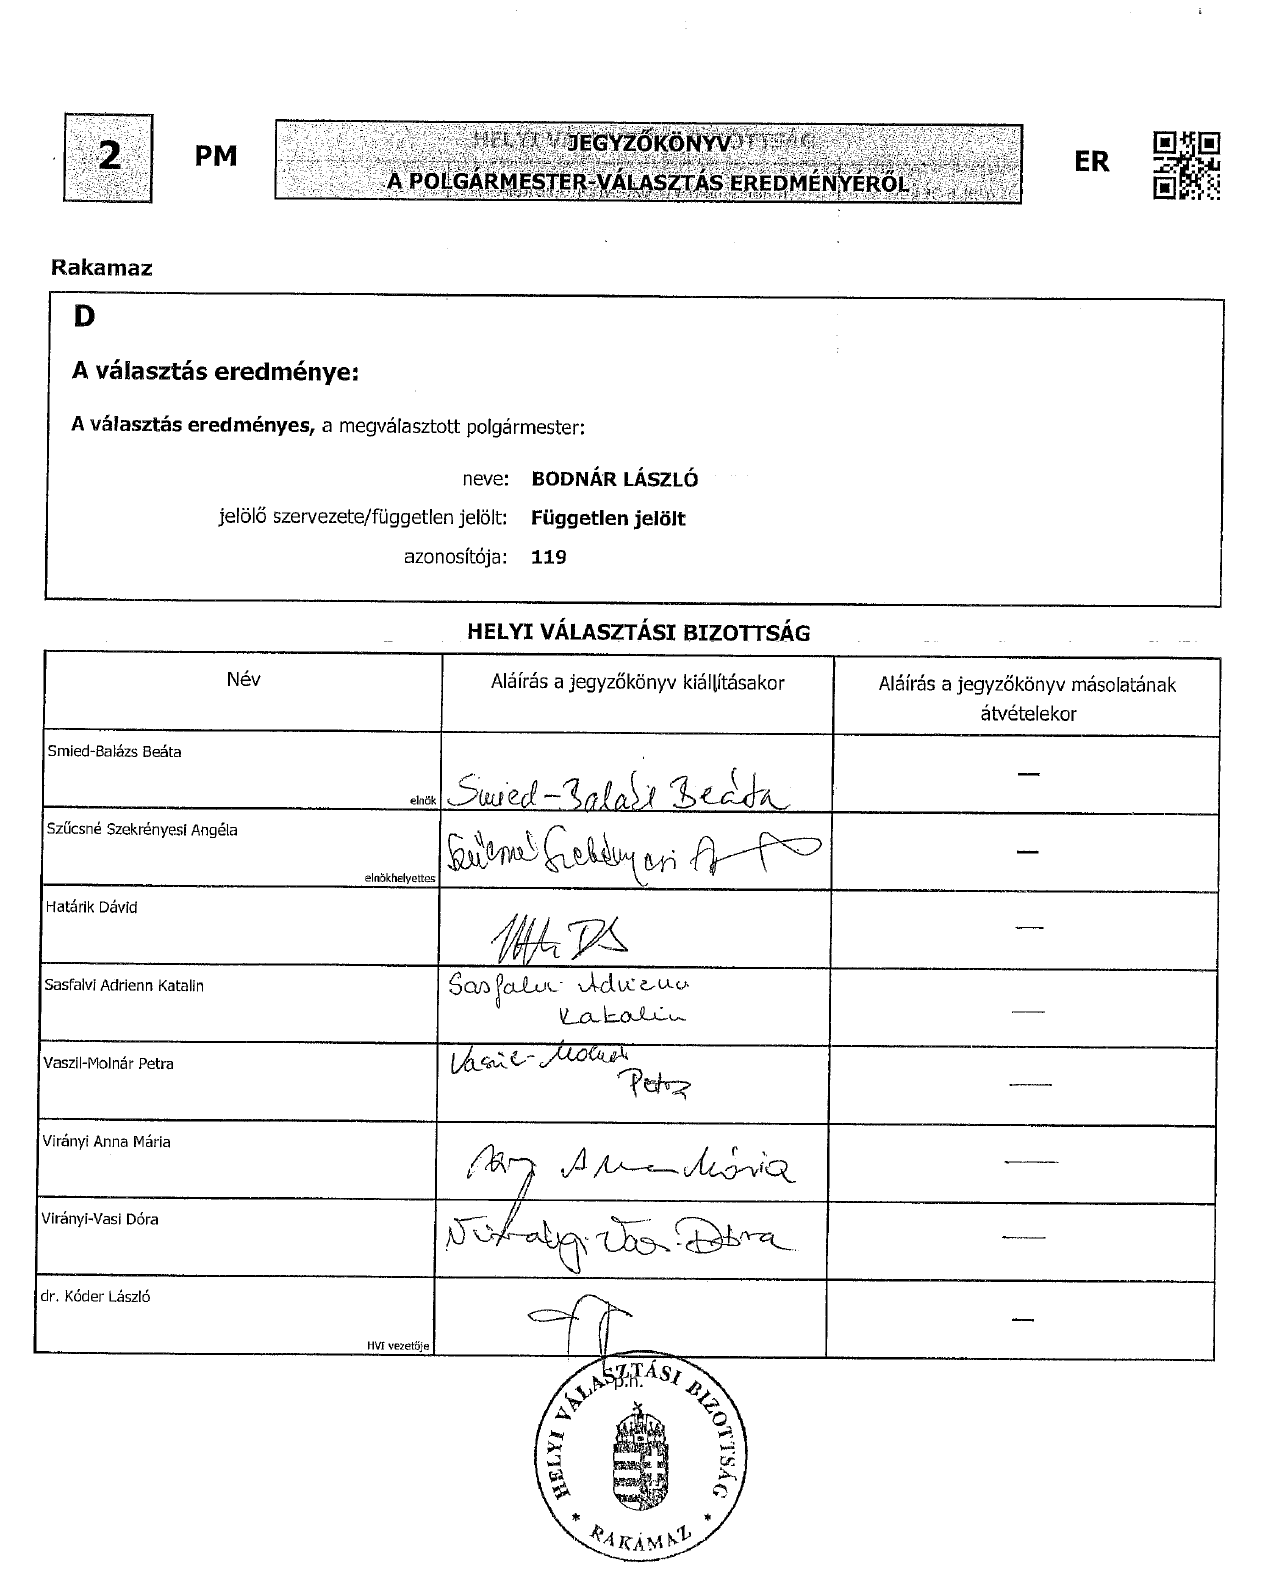 2 PM JEGYZŐKÖNYV ER
A POLGÁRMESTER-VÁLASZTÁS EREDMÉNYÉRŐL
Rakamaz
D
A választás eredménye:
A választás eredményes, a megválasztott polgármester:
neve: BODNÁR LÁSZLÓ
jelölő szervezete/független jelölt: Független jelölt
azonosítója: 119
HELYI VÁLASZTÁSI BIZOTTSÁG
Név Aláírás a jegyzőkönyv kiállításakor Aláírás a jegyzőkönyv másolatának
átvételekor
Smied-Balázs Beáta
elnök Smied-Balázs Beáta —
Szűcsné Szekrényesi Angéla
elnökhelyettes Szűcsné Szekrényesi A —
Határik Dávid —
Sasfalvi Adrienn Katalin Sasfalvi Adrienn
Katalin —
Vaszil-Molnár Petra Vaszil-Molnár
Petra —
Virányi Anna Mária Anna Mária —
Virányi-Vasi Dóra Virányi-Vasi Dóra —
dr. Kóder László
HVI vezetője —
p.h.
HELYI VÁLASZTÁSI BIZOTTSÁG
* RAKAMAZ *